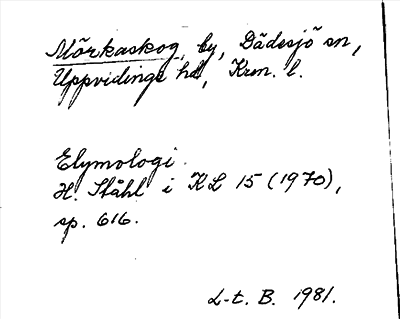 Mörkaskog, by, Dädesjö sn,
Uppvidinge hd, Kron. l.
Etymologi.
H. Ståhl i KL 15 (1970),
sp. 616.
L-t. B. 1981.